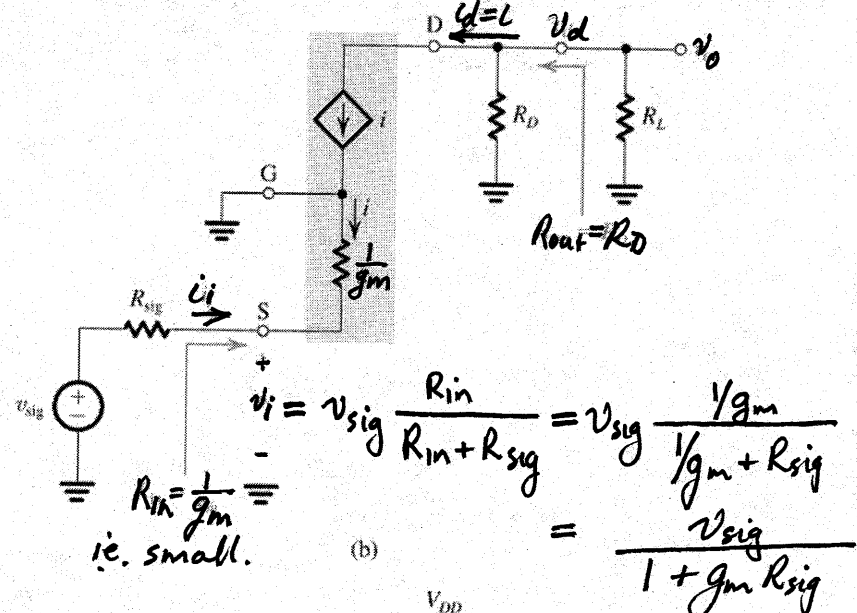 i_d = i
D
v_d
v_o
i
R_D
R_L
G
i
R_out = R_D
1/g_m
R_sig
i_i
S
+
v_sig
+
−
v_i = v_sig R_in / (R_in + R_sig) = v_sig (1/g_m) / (1/g_m + R_sig)
-
R_in = 1/g_m
i.e. small.
= v_sig / (1 + g_m R_sig)
(b)
V_DD